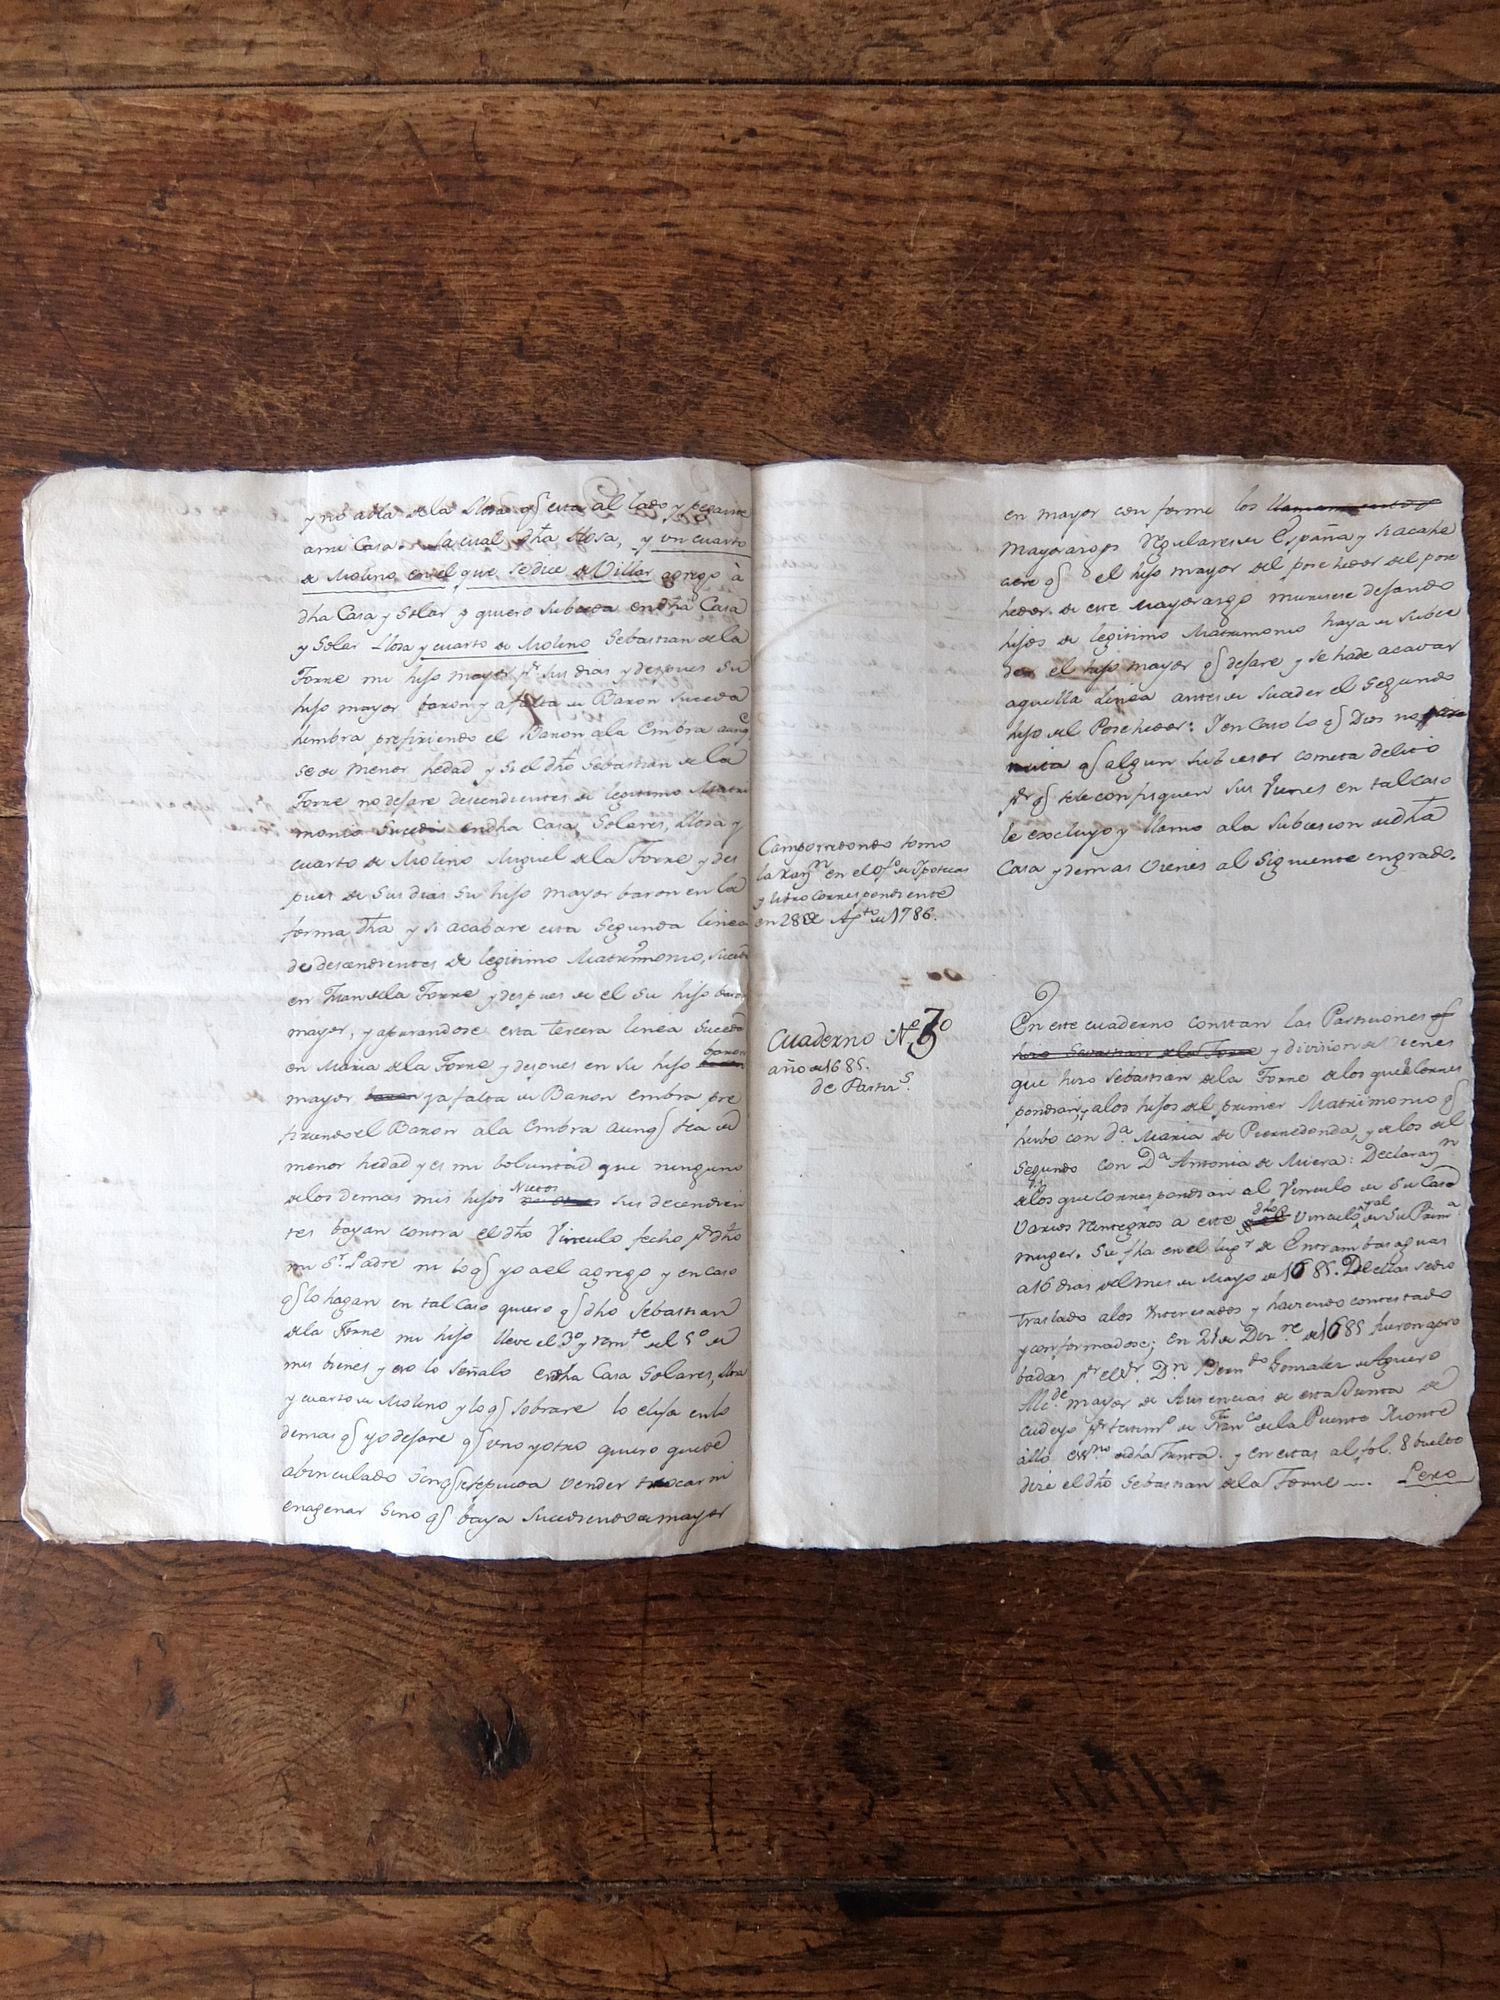 y no a otra de la Llosa q esta al lado y pegante
a mi Casa. la cual dha Llosa, y un cuarto
de Molino en el que se dice de Villar agrego à
dha Casa y Solar y quiero subceda en dha Casa
y Solar Llosa y cuarto de Molino Sebastian de la
Torre mi hijo mayor pr sus dias y despues su
hijo mayor baron y a falta de Baron suceda
hembra prefiriendo el Baron a la Embra aunq
se de menor hedad y si el dho Sebastian de la
Torre no dejare descendientes de legitimo Matri
monio suceda en dha Casa, Solares, Llosa y
cuarto de Molino Miguel de la Torre y des
pues de sus dias su hijo mayor baron en la
forma dha y si acabare esta segunda linea
de descendientes de legitimo Matrimonio, suceda
en Juan de la Torre y despues de el su hijo baron
mayor, y apurandose esta tercera linea suceda
en Maria de la Torre y despues en su hijo baron
mayor baron y a falta de Baron embra pre
firiendo el Baron a la Embra aunq sea de
menor hedad y es mi boluntad que ninguno
de los demas mis hijos Nietos sus decendien
tes bayan contra el dho Vinculo fecho pr dho
mi Sr Padre ni lo q yo a el agrego y en caso
q lo hagan en tal caso quiero q dho Sebastian
de la Torre mi hijo lleve el 3º y remte del 5º de
mis bienes y eso lo señalo en dha Casa Solares, Llosa
y cuarto de Molino y lo q sobrare lo elija en lo
demas q yo dejare q uno y otro quiero quede
abinculado sin q se pueda vender trocar ni
enagenar sino q baya sucediendo de mayor
en mayor conforme los llamamientos
Mayorazgos regulares de España y si acahe
ciere q el hijo mayor del posehedor del pose
hedor de este Mayorazgo muriese dejando
hijos de legitimo Matrimonio haya de subce
der el hijo mayor q dejare y se hade acavar
aquella linea antes de suceder el segundo
hijo del Posehedor: Y en caso lo q Dios no per
mita q algun subcesor cometa delito
pr q se le confisquen sus Vienes en tal caso
le excluyo y llamo a la subcesion de dha
Casa y demas vienes al siguiente en grado.
Camporredondo tomo
la razn en el Ofo de Ypotecas
y libro correspondiente
en 28 de Agto de 1786.
Cuaderno Nº 3º
año de 1685.
de Partis.
En este cuaderno constan las Partiziones q
hizo Sevastian de la Torre y division de Vienes
que hizo Sebastian de la Torre de los que corres
pondian a los hijos del primer Matrimonio q
hubo con Da Maria de Pierredonda, y de los del
Segundo con Da Antonia de Miera: Declaran
de los que correspondian al Vinculo de su Casa
varios reintegros a este dho vinculo y al de su Prima
muger. Su fha en el lugr de Entrambasaguas
a 16 dias del mes de Mayo de 1685. De ellas se dio
traslado a los Interesados y haviendo contestado
y conformadose; en 21 de Dizre de 1685 fueron apro
badas pr el Sr Dn Berndo Gonzalez de Aguero
Alcde mayor de Ausencias de esta Junta de
cudeyo pr testimo de Franco de la Puente Monte
cillo essno de dha Junta. y en estas al fol. 8 buelto
dize el dho Sebastian de la Torre .... Pero